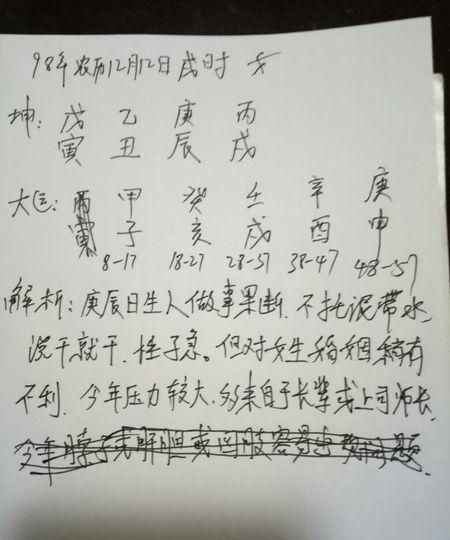 98年农历12月12日戌时 女
坤: 戊 乙 庚 丙
寅 丑 辰 戌
大运: 甲 癸 壬 辛 庚
子 亥 戌 酉 申
8-17 18-27 28-37 38-47 48-57
解析: 庚辰日生人做事果断、不拖泥带水、
说干就干、性子急。但对女生婚姻稍有
不利、今年压力较大、多来自于长辈或上司师长、